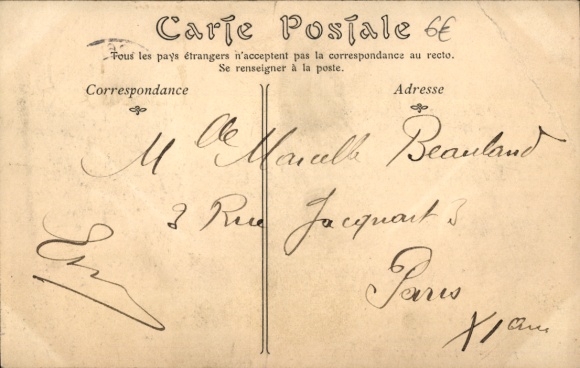 Carte Postale 6€
Tous les pays étrangers n'acceptent pas la correspondance au recto.
Se renseigner à la poste.
Correspondance
Adresse
Mlle Marcelle Beauland
3 Rue Jacquart 3
Paris
XIeme